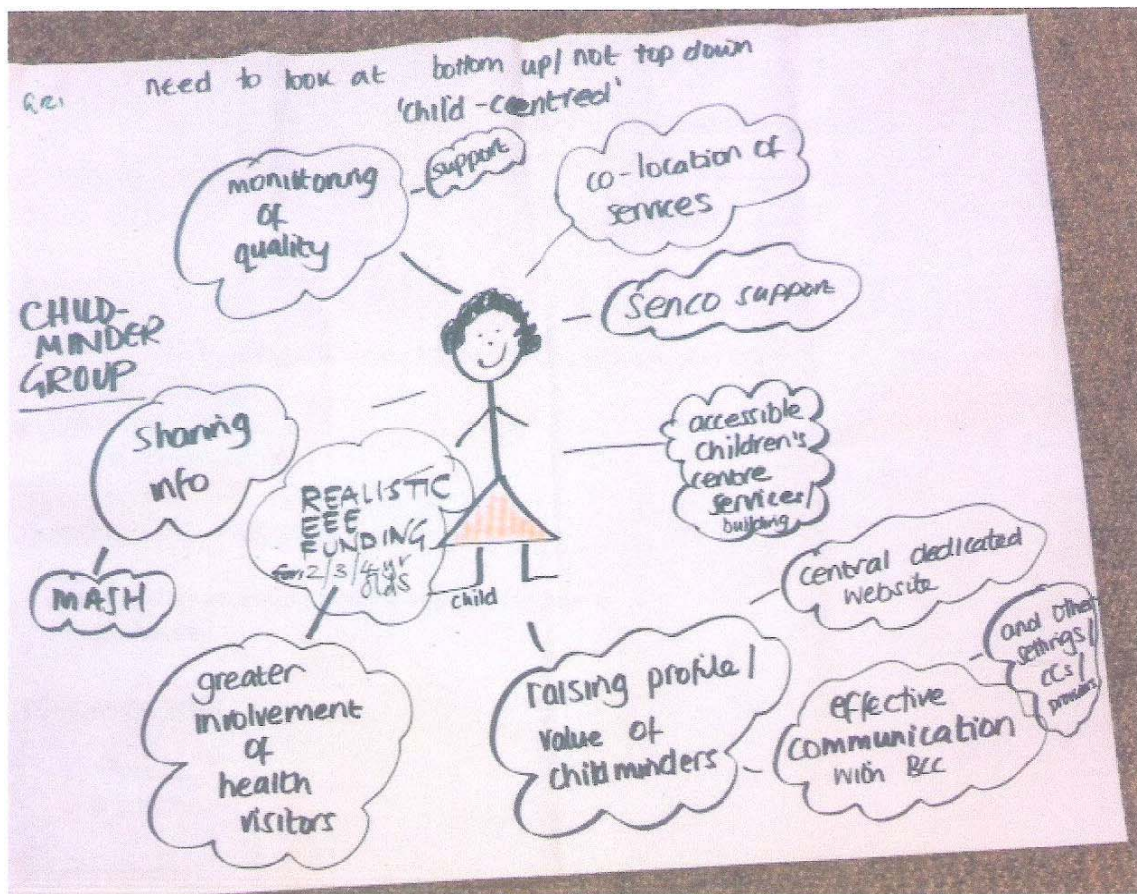 need to look at bottom up/ not top down
'child-centred'
monitoring
of
quality
support
co-location of
services
senco support
CHILD-
MINDER
GROUP
sharing
info
MASH
REALISTIC
EEE
FUNDING
for 2/3/4 yr
olds
child
accessible
children's
centre
services/
building
central dedicated
website
greater
involvement
of
health
visitors
raising profile/
value of
childminders
effective
communication
with BCC
and other
settings/
CCs/
providers